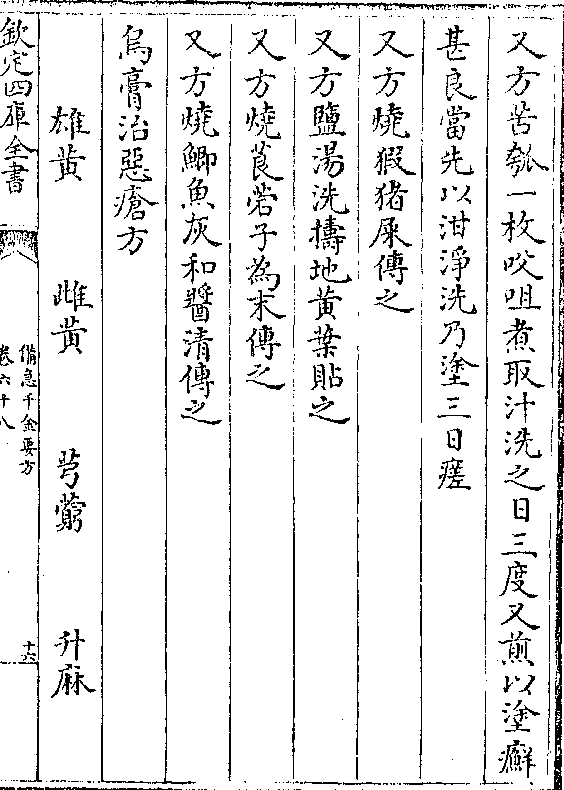 又方苦瓠一枚㕮咀煮取汁洗之日三度又煎以塗癬
甚良當先以泔淨洗乃塗三日瘥
又方燒猳猪屎傅之
又方鹽湯洗擣地黄葉貼之
又方燒莨菪子為末傅之
又方燒鯽魚灰和醬清傅之
烏膏治惡瘡方
雄黄 雌黄 芎藭 升麻
欽定四庫全書
備急千金要方
卷六十八
十六